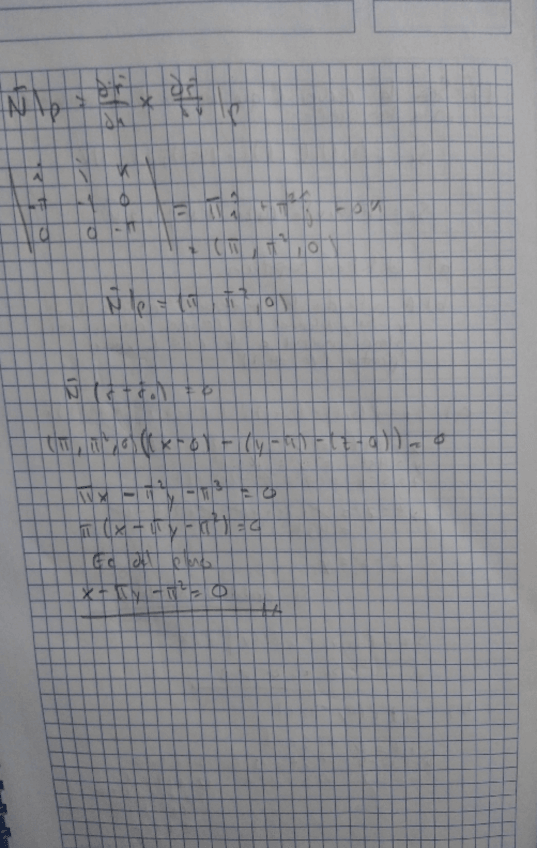 N̄|p = ∂r̄/∂u × ∂r̄/∂v |p
| i j k |
| -π -1 0 | = πî + π²ĵ + 0k
| 0 0 -π | = (π, π², 0)
N̄|p = (π, π², 0)
N̄ (r̄ - r̄₀) = 0
(π, π², 0)((x-0) - (y-π) - (z-0)) = 0
πx - π²y - π³ = 0
π(x - πy - π²) = 0
Ec del plano
x - πy - π² = 0